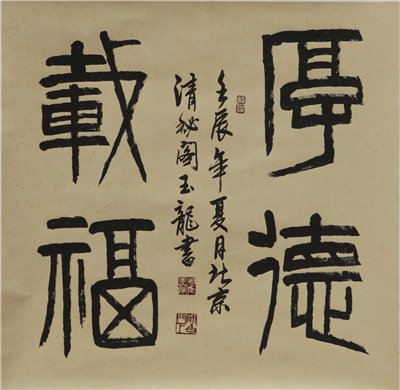 厚德
載福
壬辰年夏月北京
清秘阁玉龍書